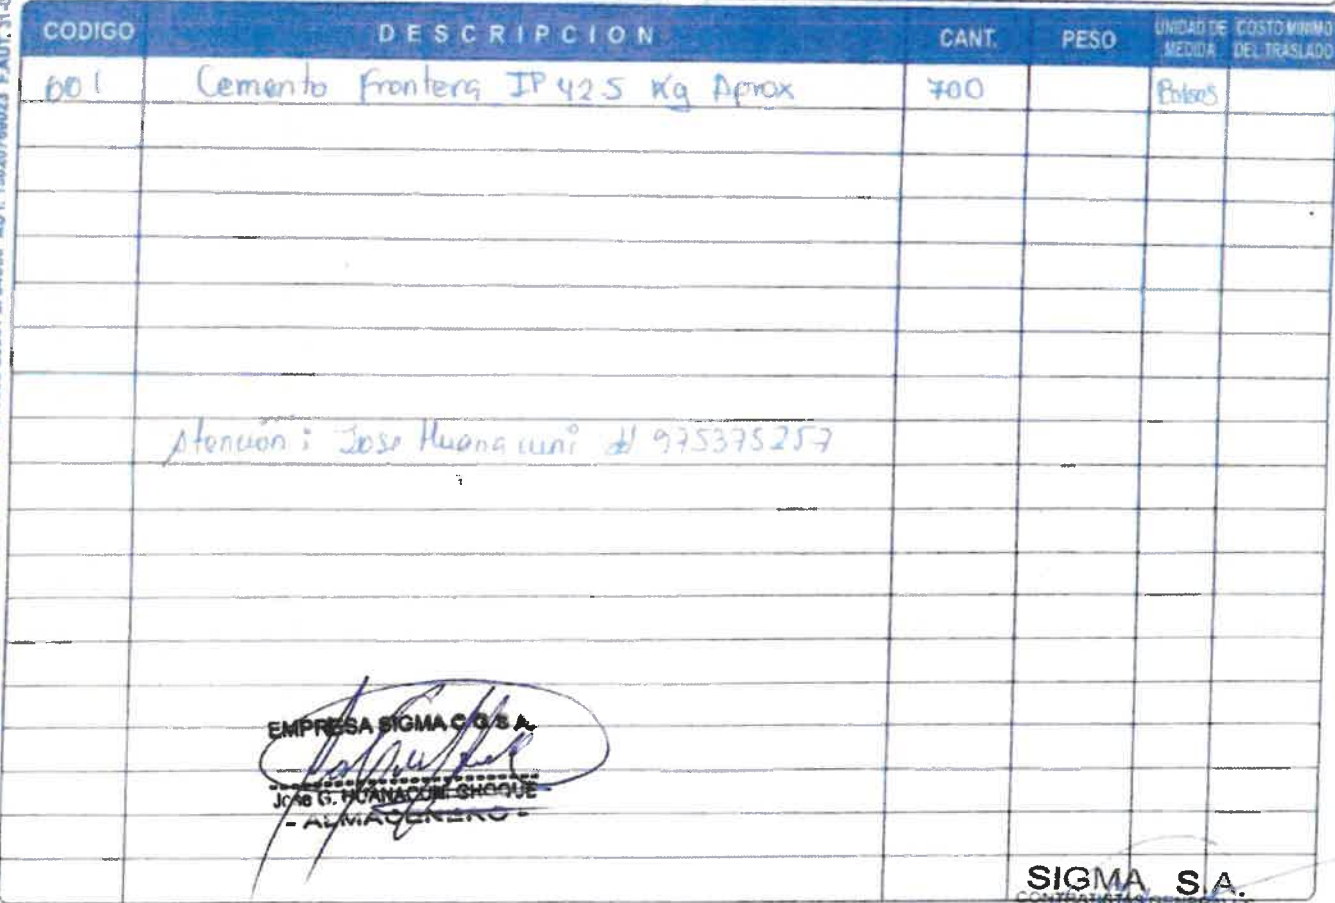 CODIGO DESCRIPCION CANT. PESO UNIDAD DE MEDIDA COSTO MINIMO DEL TRASLADO
001 Cemento Frontera IP 42.5 Kg Aprox 700 Bolsas
Atencion: Jose Huanacuni # 975375257
EMPRESA SIGMA C G S A.
Jose G. HUANACUNI CHOQUE
- ALMACENERO -
SIGMA S.A.
CONTRATISTAS GENERALES